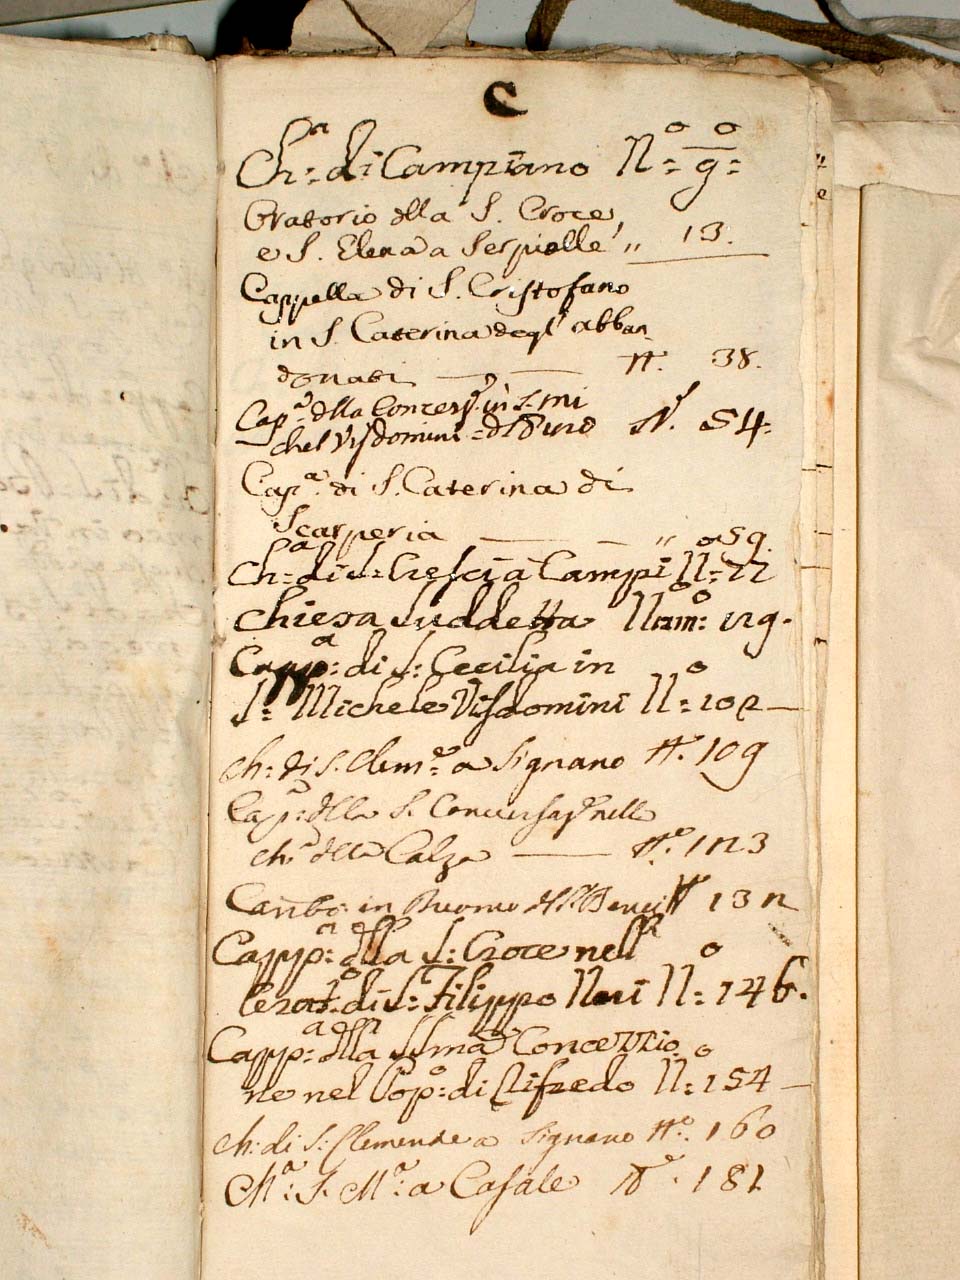 C
Ch:ª di Campiano N:º 9:
Oratorio dlla S. Croce,
e S. Elena a Serpiolle „ 13.
Cappella di S. Cristofano
in S. Caterina degl' abban
donati N. 38.
Cap.ª dlla in S. Mi
chel Visdomini N. 54.
Cap.ª di S. Caterina di
Scarperia „ 59.
Ch:ª di S: Cresci a Campi N:º 77
Chiesa suddetta Num:º 129.
Capp:ª di S: Cecilia in
S: Michele Visdomini N:º 102
Ch: di S. Clem:e a Signano N. 109
Cap:ª dlla S. nella
ch:ª della Calza N:º 123
in N 132
Capp:ª dlla S: Croce nell
di S: Filippo Neri N:º 146.
Capp:ª dlla SSma Concezzio
ne nel Pop:º di Cifredo N:º 154
Ch: di S: Clemente a Signano N:º 160
Ch:ª S. M:ª a Casale N:º 181